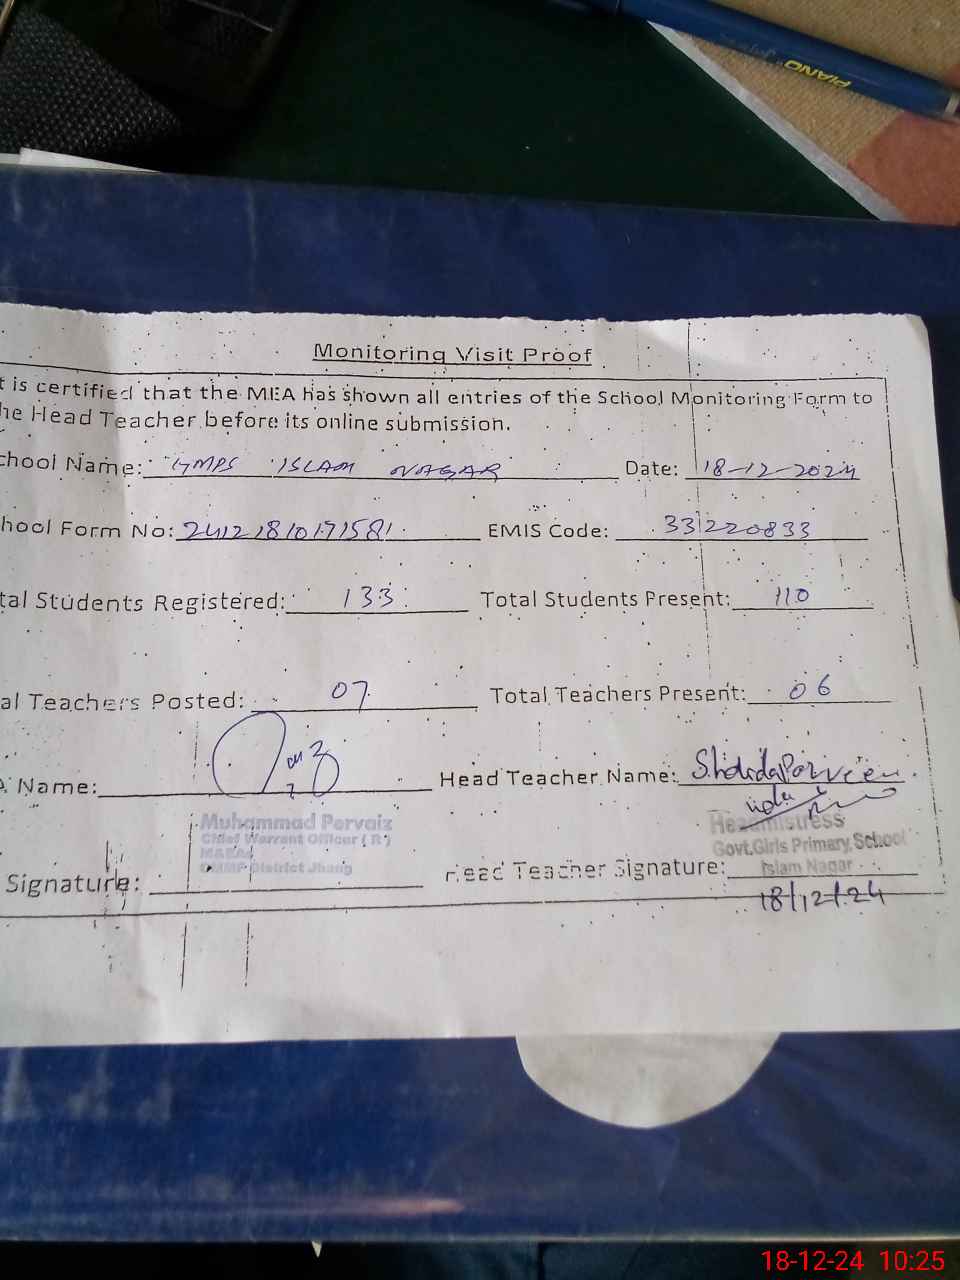 PIANO
Monitoring Visit Proof
t is certified that the MEA has shown all entries of the School Monitoring Form to
he Head Teacher before its online submission.
chool Name: GMPS ISLAM NAGAR Date: 18-12-2024
hool Form No: EMIS Code: 33220833
tal Students Registered: 133 Total Students Present: 110
al Teachers Posted: 07 Total Teachers Present: 06
Name: Head Teacher Name: Shahida Parveen
Muhammad Pervaiz
Chief Warrant Officer (R)
MEA
CMMP District Jhang
Headmistress
Govt.Girls Primary School
Islam Nagar
Signature: Head Teacher Signature:
18/12/24
18-12-24 10:25